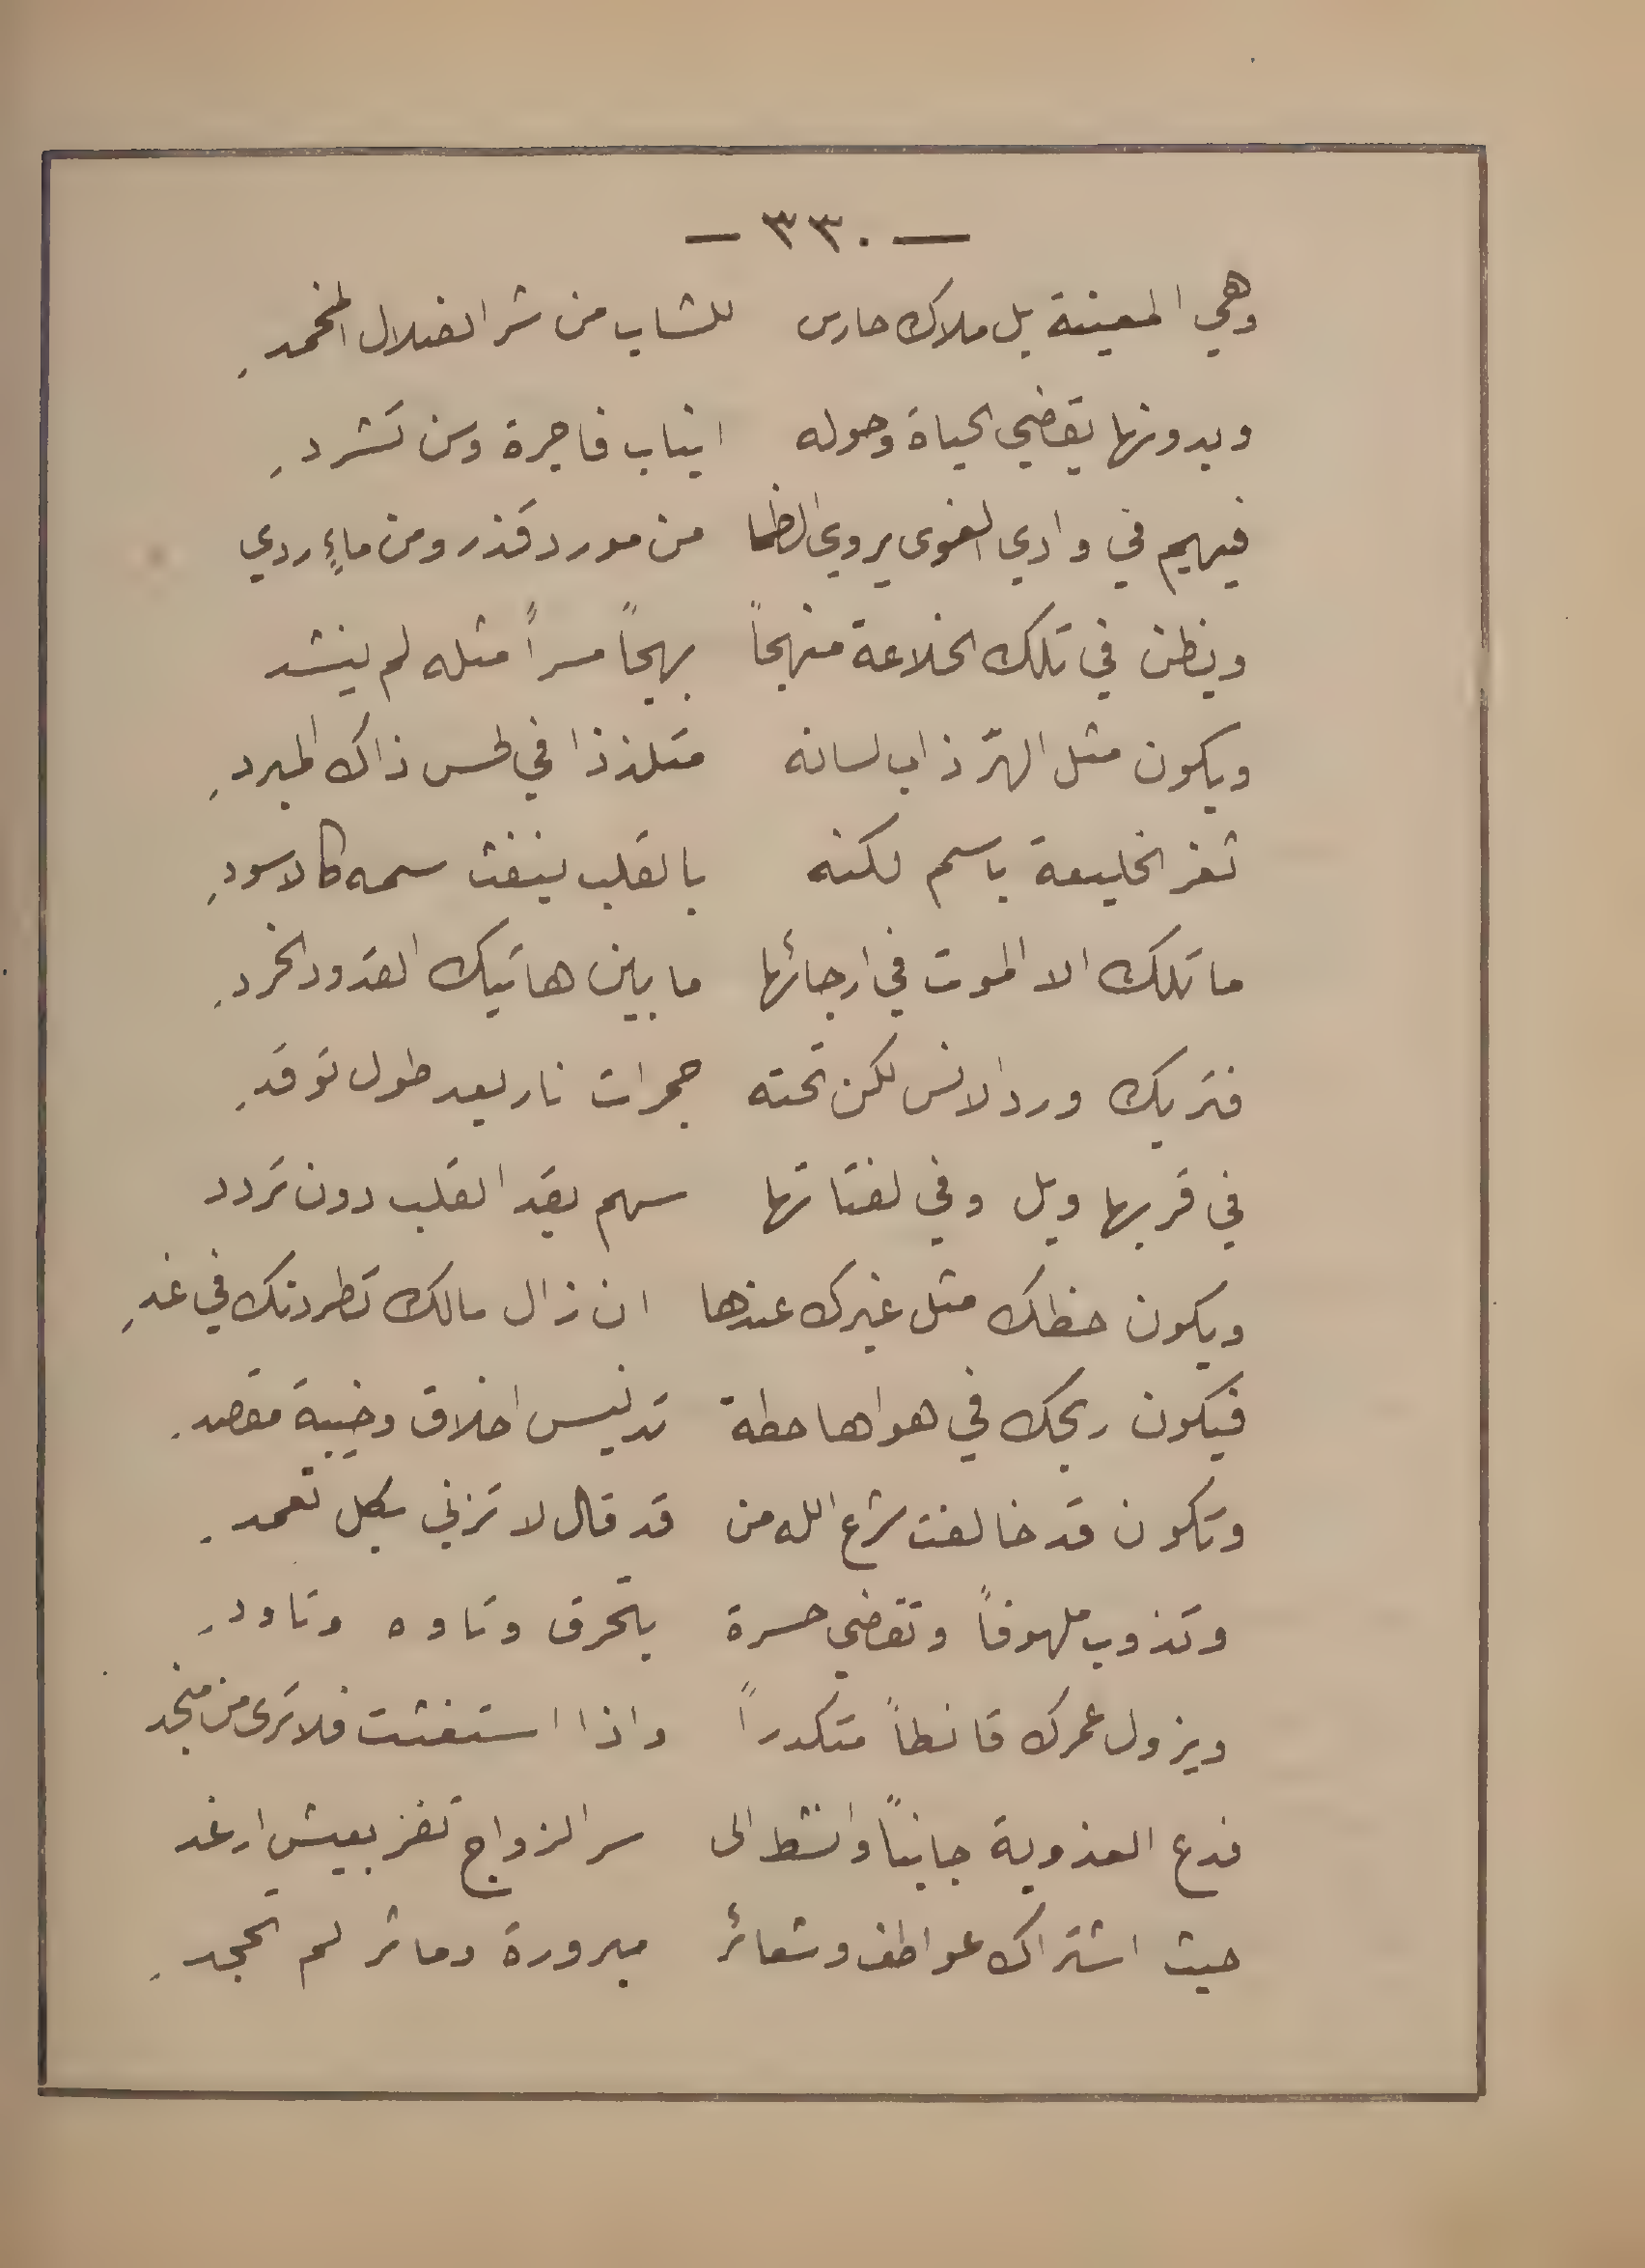 — ٣٣٠ —
وهي المعينة بل ملاك حارس للشاب من شر الضلال المخمدِ
وبدونها يقضي الحياة وحوله انياب فاجرة وسن تشردِ
فيهيم في وادي الغوى يروي الظما من مورد قذر ومن ماءٍ ردي
ويظن في تلك الخلاعة منهجاً بهجاً مسراً مثله لم ينشد
ويكون مثل الهرّ ذاب لسانه متلذذا في لحس ذاك المبردِ
ثغر الخليعة باسم لكنه بالقلب ينفث سمه كالاسودِ
ما تلك الا الموت في ارجائها ما بين هاتيك القدود الخردِ
فتريك ورد الانس لكن تحته جمرات نار بعد طول توقدِ
في قربها ويل وفي لفتاتها سهم يقد القلب دون تردد
ويكون حظك مثل غيرك عندها ان زال مالك تطردنك في غدِ
فيكون ربحك في هواها حطة تدنيس اخلاق وخيبة مقصدِ
وتكون قد خالفت شرع الله من قد قال لا تزني بكل تعمدِ
وتذوب ملهوفاً وتقضي حسرة بتحرق وتاوه وتاودِ
ويزول عمرك قانطاً متكدراً واذا استغثت فلا ترى من منجد
فدع العذوبة جانباً وانشط الى سر الزواج تفز بعيش ارغد
حيث اشتراك عواطف وشعائر مبرورة ومآثر لم تجحدِ